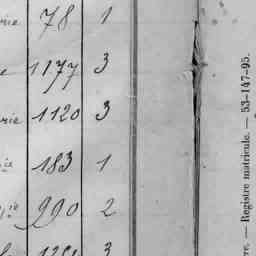 rie 78 1
e 1177 3
rie 1120 3
ie 183 1
ie 990 2
3
re. — Registre matricule. — 53-147-95.